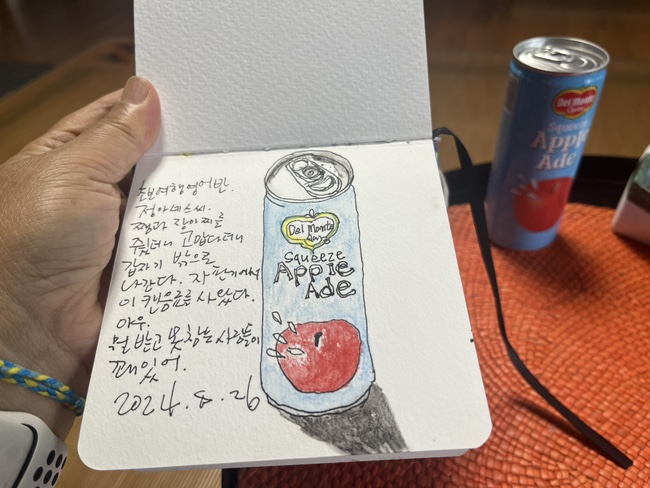 초보여행영어반.
정아네스씨.
쨈과 장아찌를
주웠더니 고맙다더니
갑자기 밖으로
나간다. 자판기에서
이 캔음료를 사왔다.
아우.
뭘 받고 못참는 사람들이
꽤있어.
2024. 8. 26
Del Monte
Squeeze
Apple
Ade
Del Monte
Squeeze
Apple
Ade